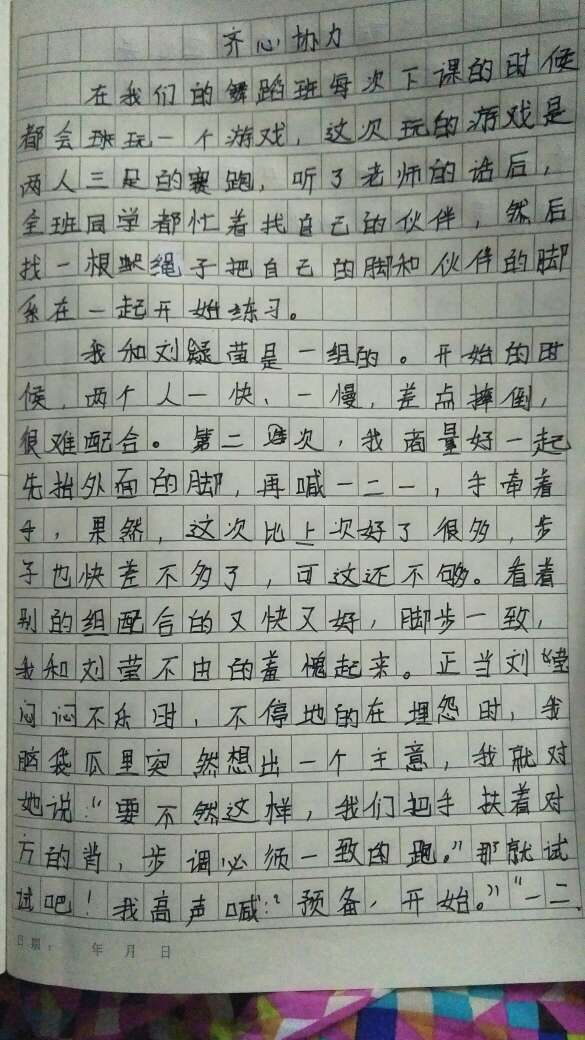 齐心协力
在我们的舞蹈班每次下课的时候
都会玩一个游戏，这次玩的游戏是
两人三足的赛跑，听了老师的话后，
全班同学都忙着找自己的伙伴，然后
找一根绳子把自己的脚和伙伴的脚
系在一起开始练习。
我和刘疑莹是一组的。开始的时
候，两个人一快、一慢，差点摔倒，
很难配合。第二次，我商量好一起
先抬外面的脚，再喊一二一，手牵着
手，果然，这次比上次好了很多，步
子也快差不多了，可这还不够。看着
别的组配合的又快又好，脚步一致，
我和刘莹不由的羞愧起来。正当刘莹
闷闷不乐时，不停地的在埋怨时，我
脑袋瓜里突然想出一个主意，我就对
她说：“要不然这样，我们把手扶着对
方的肖，步调必须一致的跑。”那就试
试吧！我高声喊：“预备，开始。”“一二
日期： 年 月 日